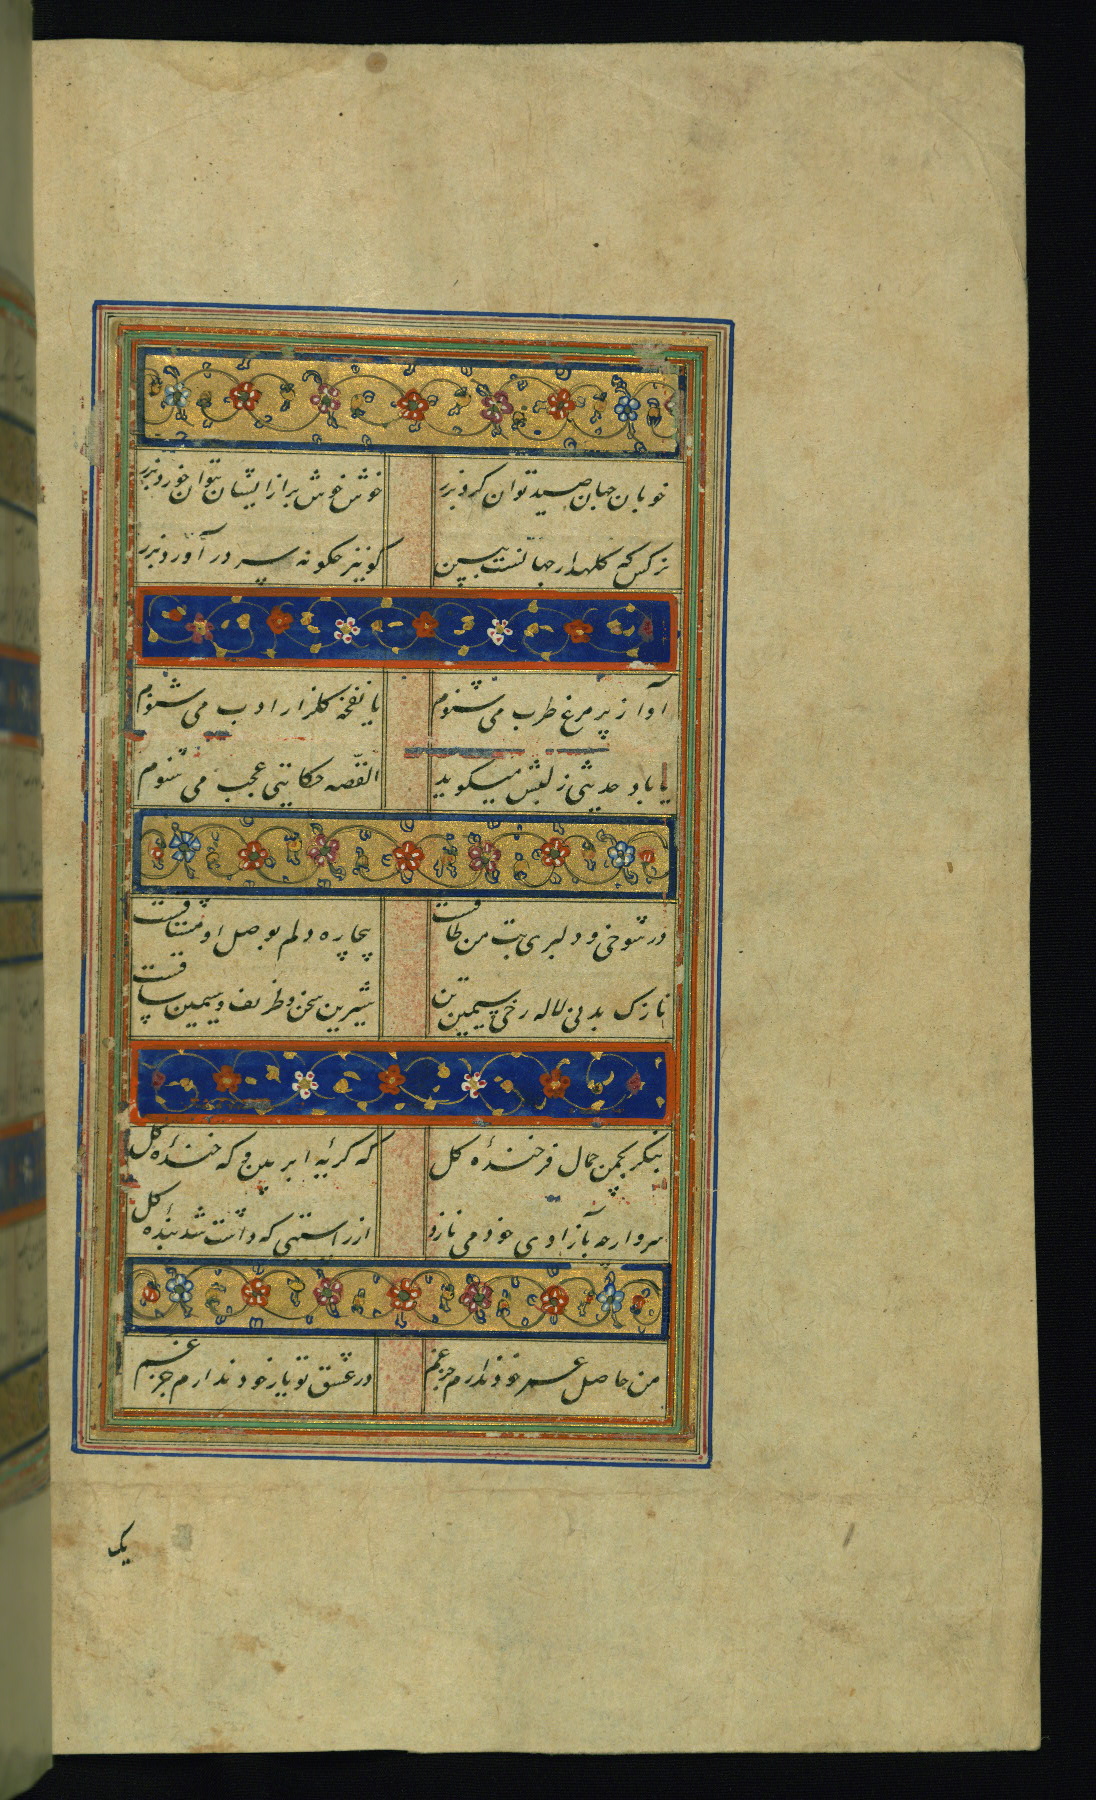 خوبان جهان صید توان کرد بزر خوش خوش بر ازایشان بتوان خورد بزر
نرکس که کلهدار جهانست ببین کو نیز چکونه سر در آورد بزر
آواز پر مرغ طرب می شنوم یا نفخه کلزار ادب می شنوم
یا باد حدیثی ز لبش میکوید القصّه حکایتی عجب می شنوم
در شوخی و دلبری بت من طاقست بیچاره دلم بوصل او مشتاقست
نازک بدنی لاله رخی سیمین تن شیرین سخن و ظریف و سیمین ساقست
بنکر بچمن جمال فرخندهٔ کل که کریهٔ ابر بین و که خندهٔ کل
سرو ارچه بآزادی خود می نازد از راستیی که داشت شد بندهٔ کل
من حاصل عمر خود ندارم جز غم در عشق تو یار خود ندارم جز غم
یک